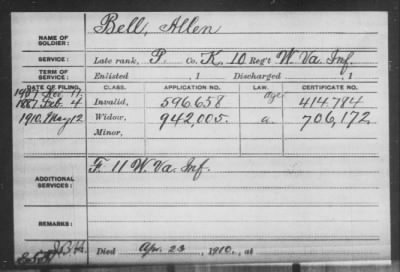 NAME OF SOLDIER: Bell, Allen
SERVICE: Late rank, P. Co. K, 10 Reg't W. Va. Inf.
TERM OF SERVICE: Enlisted , 1 Discharged , 1
DATE OF FILING. CLASS. APPLICATION NO. LAW. CERTIFICATE NO.
1887 Feb. 4 Invalid, 596.658 414784
1910. May 12 Widow, 942,005. a. 706,172
Minor,
ADDITIONAL SERVICES: F. 11 W. Va. Inf.
REMARKS:
Died Apr. 23, 1910, at